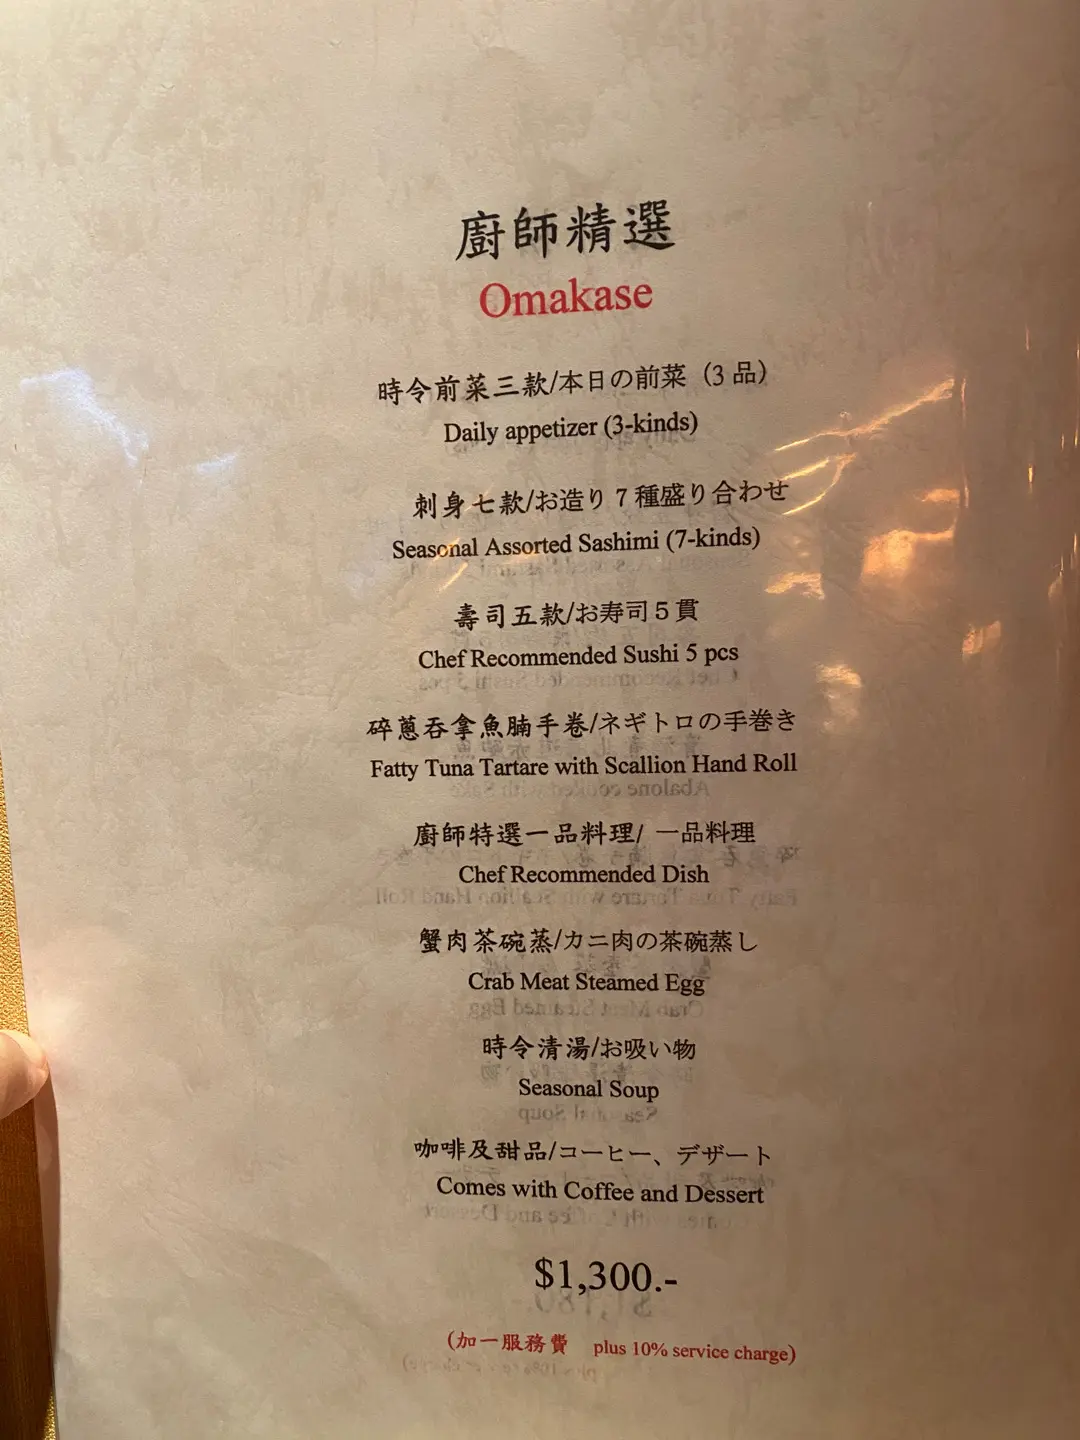 廚師精選
Omakase
時令前菜三款/本日の前菜（3 品）
Daily appetizer (3-kinds)
刺身七款/お造り 7 種盛り合わせ
Seasonal Assorted Sashimi (7-kinds)
壽司五款/お寿司５貫
Chef Recommended Sushi 5 pcs
碎蔥吞拿魚腩手卷/ネギトロの手巻き
Fatty Tuna Tartare with Scallion Hand Roll
廚師特選一品料理/ 一品料理
Chef Recommended Dish
蟹肉茶碗蒸/カニ肉の茶碗蒸し
Crab Meat Steamed Egg
時令清湯/お吸い物
Seasonal Soup
咖啡及甜品/コーヒー、デザート
Comes with Coffee and Dessert
$1,300.-
(加一服務費 plus 10% service charge)